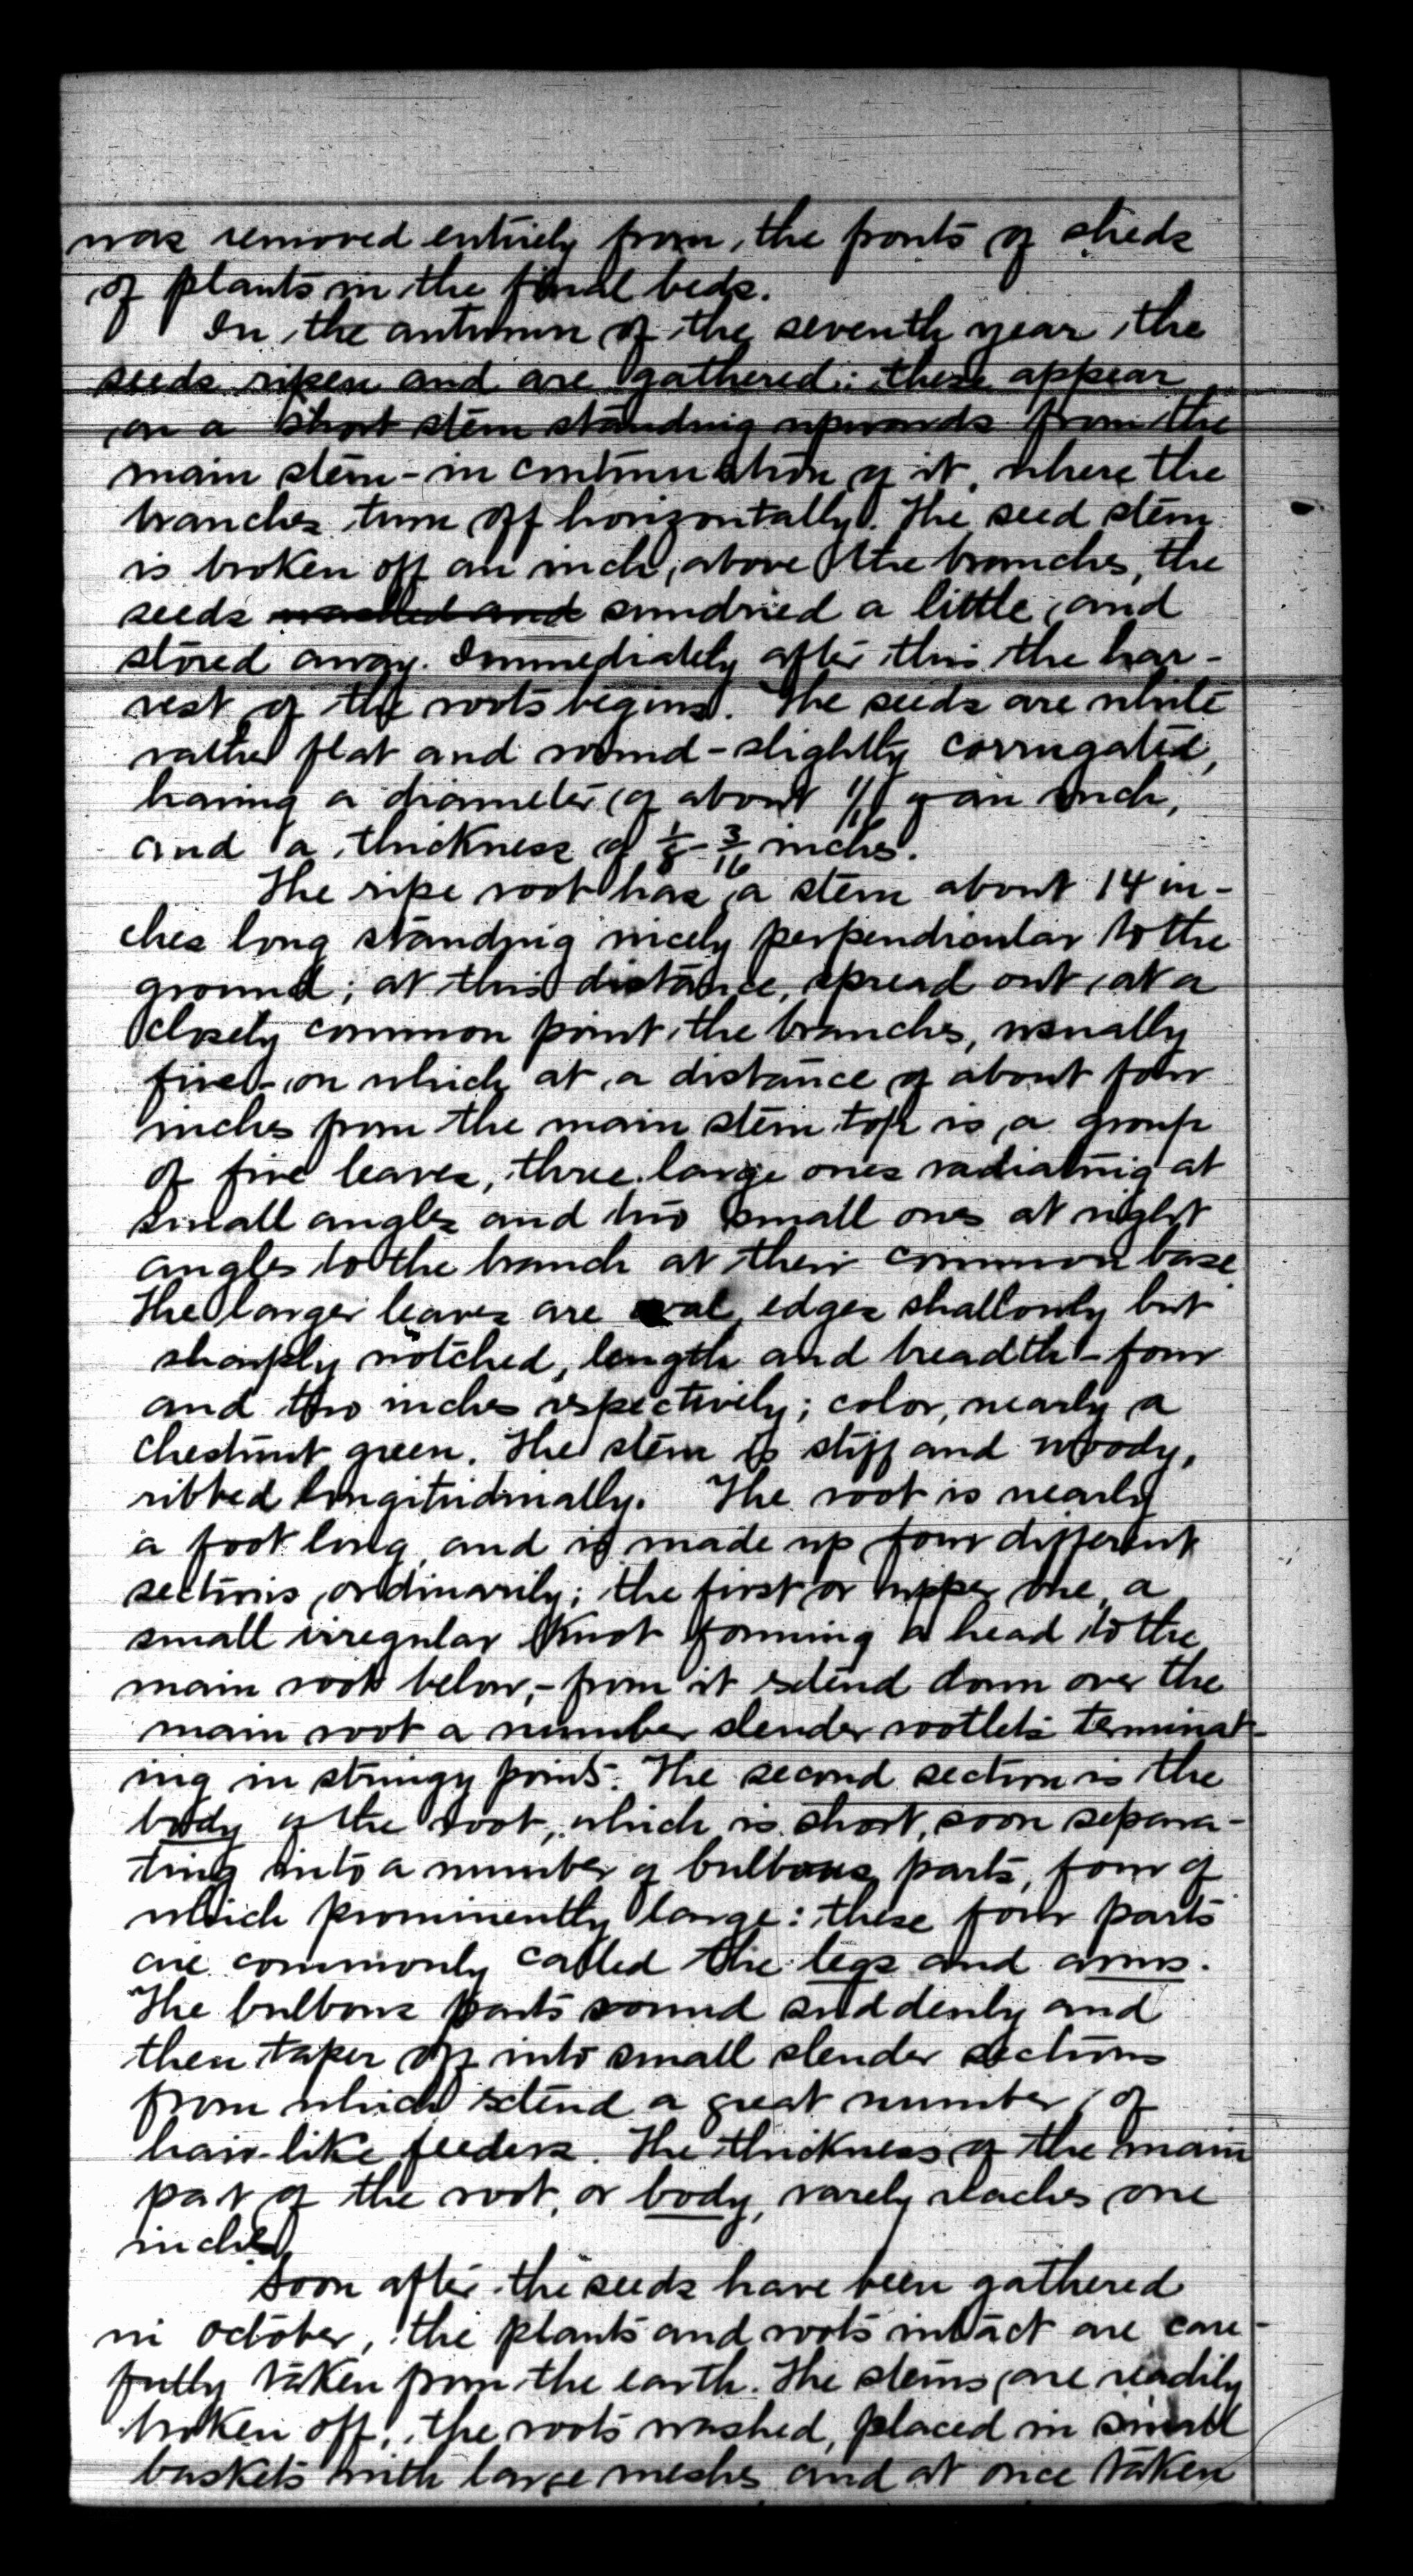 was removed entirely from the fronts of sheds
of plants in the final beds.
In the autumn of the seventh year the
seeds ripen and are gathered: these appear
on a short stem standing upwards from the
main stem - in continuation of it, where the
branches turn off horizontally. The seed stem
is broken off an inch above the branches, the
seeds washed and sundried a little, and
stored away. Immediately after this the har-
vest of the roots begins. The seeds are white
rather flat and round - slightly corrugated,
having a diameter of about of an inch,
and a thickness of 1/8 - 3/16 inches.
The ripe root has a stem about 14 in-
ches long standing nicely perpendicular to the
ground; at this distance, spread out, at a
closely common point, the branches, usually
five - on which at a distance of about four
inches from the main stem top is a group
of five leaves, three large ones radiating at
small angles and two small ones at right
angles to the branch at their common base.
The larger leaves are oval, edges shallowly but
sharply notched, length and breadth - four
and two inches respectively; color, nearly a
chestnut green. The stem is stiff and woody,
ribbed longitudinally. The root is nearly
a foot long, and is made up four different
sections, ordinarily; the first or upper one, a
small irregular knot forming a head to the
main root below, - from it extend down over the
main root a number slender rootlets terminat-
ing in stringy points. The second section is the
body of the root, which is short, soon separa-
ting into a number of bulbous parts, four of
which prominently large: these four parts
are commonly called the legs and arms.
The bulbous parts round suddenly and
then taper off into small slender sections
from which extend a great number of
hair-like feeders. The thickness of the main
part of the root, or body, rarely reaches one
inches.
Soon after the seeds have been gathered
in october, the plants and roots intact are care-
fully taken from the earth. The stems are readily
broken off, the roots washed, placed in small
baskets with large meshes and at once taken